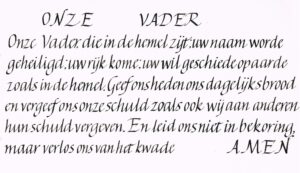 ONZE VADER
Onze Vader die in de hemel zijt: uw naam worde
geheiligd: uw rijk kome: uw wil geschiede op aarde
zoals in de hemel. Geef ons heden ons dagelijks brood
en vergeef ons onze schuld zoals ook wij aan anderen
hun schuld vergeven. En leid ons niet in bekoring,
maar verlos ons van het kwade AMEN